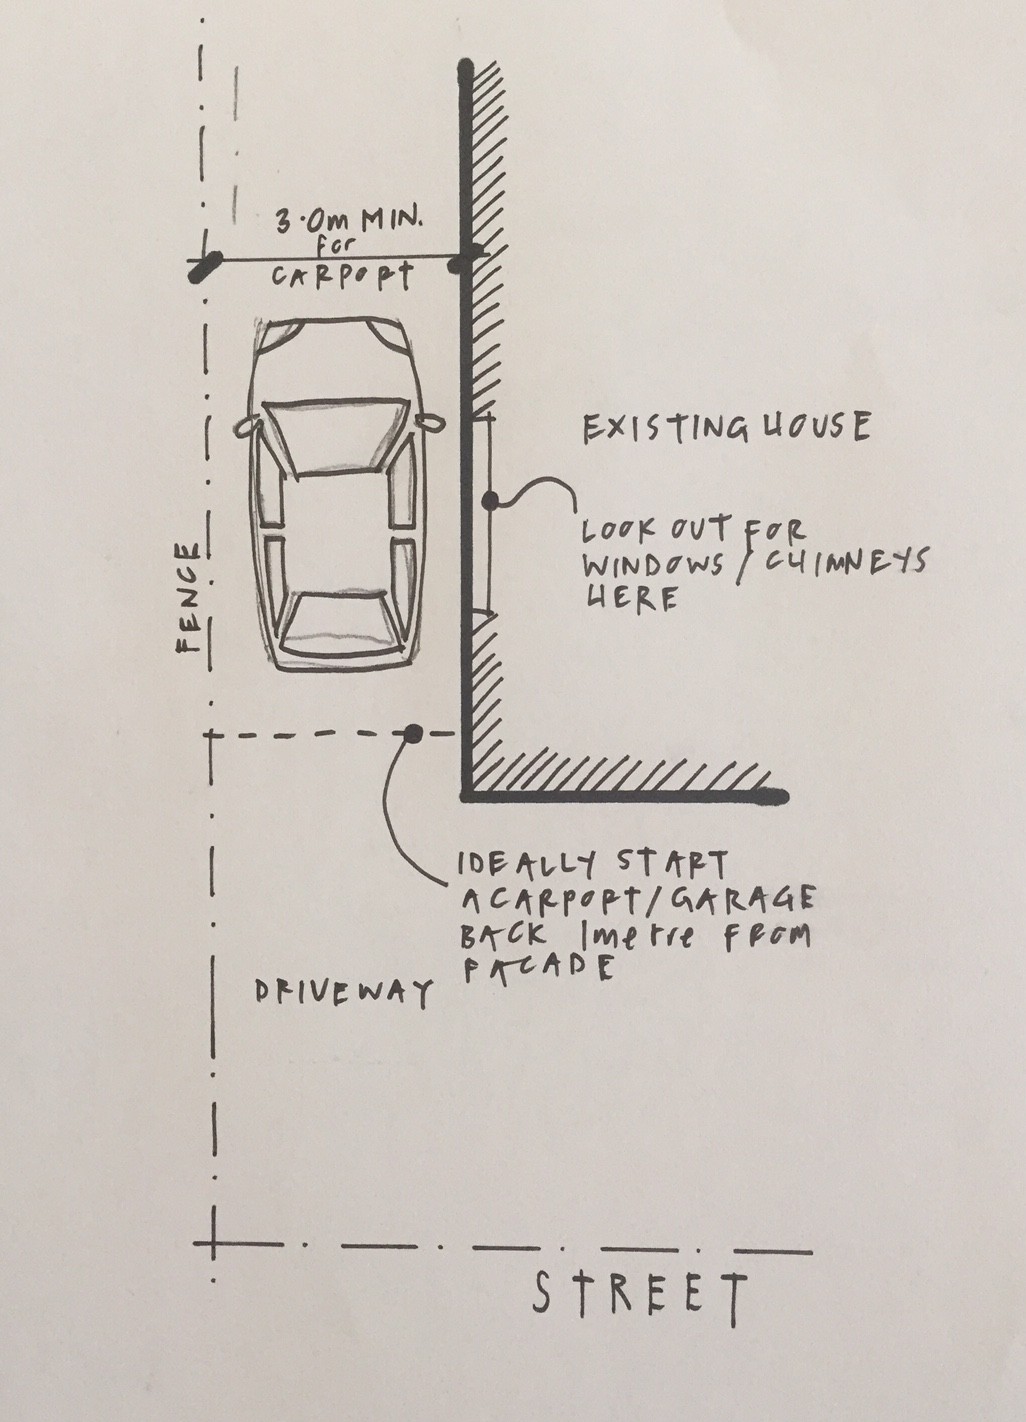 3.0m MIN.
for
CARPORT
EXISTING HOUSE
LOOK OUT FOR
WINDOWS / CHIMNEYS
HERE
FENCE
IDEALLY START
A CARPORT/GARAGE
BACK 1metre FROM
FACADE
DRIVEWAY
STREET